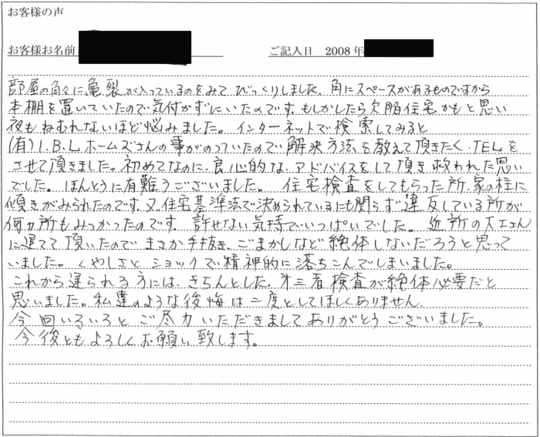 お客様の声
お客様お名前
ご記入日 2008年
部屋の角々に亀裂が入っているのをみて、びっくりしました。角にスペースがあるものですから
本棚を置いていたので気付かずにいたのです。もしかしたら欠陥住宅かもと思い
夜もねむれないほど悩みました。インターネットで検索してみると
(有)I.B.Lホームズさんの事がのっていたので解決方法を教えて頂きたく、TELを
させて頂きました。初めてなのに、良心的な、アドバイスをして頂き救われた思い
でした。ほんとうに有難うございました。住宅検査をしてもらった所、家の柱に
傾きがみられたのです。又、住宅基準法で決められているにも関らず違反している所が
何カ所もみつかったのです。許せない気持でいっぱいでした。近所の大工さん
に建てて頂いたので まさか手抜き、ごまかしなど絶体しないだろうと思って
いました。くやしさと、ショックで精神的に落ちこんでしまいました。
これから建られる方には、きちんとした、第三者検査が絶体必要だと
思いました。私達のような後悔は二度としてほしくありません。
今回いろいろと、ご尽力いただきましてありがとうございました。
今後ともよろしくお願い致します。